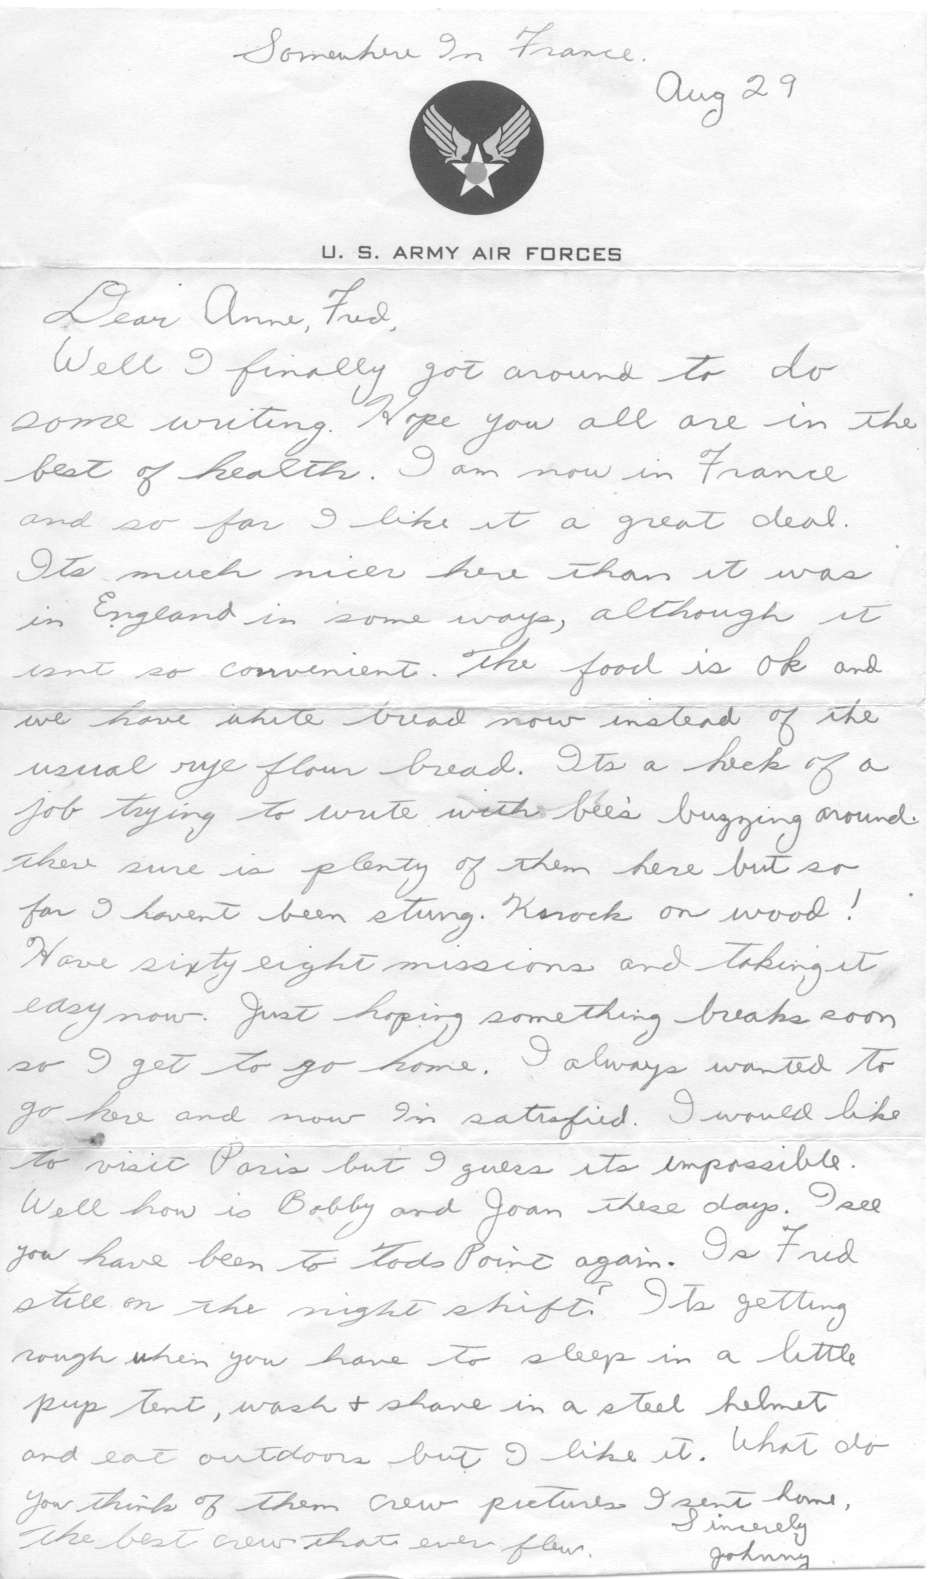 Somewhere In France.
Aug 29
U. S. ARMY AIR FORCES
Dear Anne, Fred,
Well I finally got around to do
some writing. Hope you all are in the
best of health. I am now in France
and so far I like it a great deal.
Its much nicer here than it was
in England in some ways, although it
isnt so convenient. The food is ok and
we have white bread now instead of the
usual rye flour bread. Its a heck of a
job trying to write with bee's buzzing around.
there sure is plenty of them here but so
far I havent been stung. Knock on wood!
Have sixty eight missions and taking it
easy now. Just hoping something breaks soon
so I get to go home. I always wanted to
go here and now Im satisfied. I would like
to visit Paris but I guess its impossible.
Well how is Bobby and Joan these days. I see
you have been to Tods Point again. Is Fred
still on the night shift? Its getting
rough when you have to sleep in a little
pup tent, wash & shave in a steel helmet
and eat outdoors but I like it. What do
you think of them crew pictures I sent home,
the best crew that ever flew.
Sincerely
Johnny